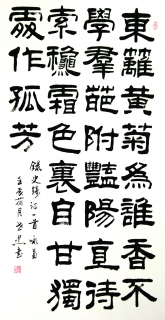 東籬黃菊為誰香不
學羣葩附豔陽直待
素龝霜色裏自甘獨
處作孤芳
錄史鑄詩一首詠菊
壬辰 月 書